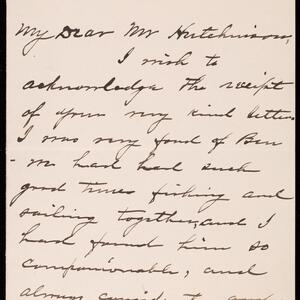 My Dear Mr Hutchinson,
I wish to
acknowledge the receipt
of your very kind letter.
I was very fond of Ben
- We had had such
good times fishing and
sailing together, and I
had found him so
companionable, and
always